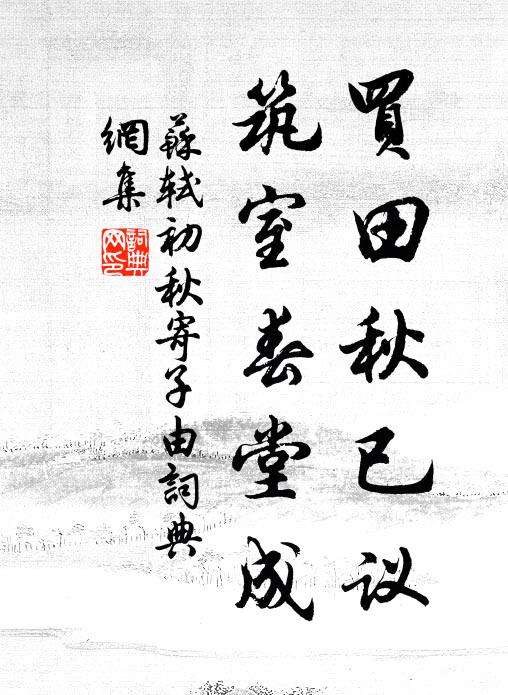 買田秋已议
筑室春堂成
蘇軾初秋寄子由詞典
網集
詞典
网印